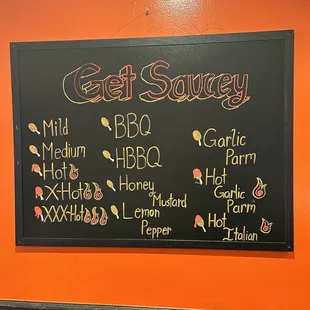 Get Saucey
Mild
Medium
Hot
X-Hot
XXX-Hot
BBQ
HBBQ
Honey
Mustard
Lemon
Pepper
Garlic
Parm
Hot
Garlic
Parm
Hot
Italian